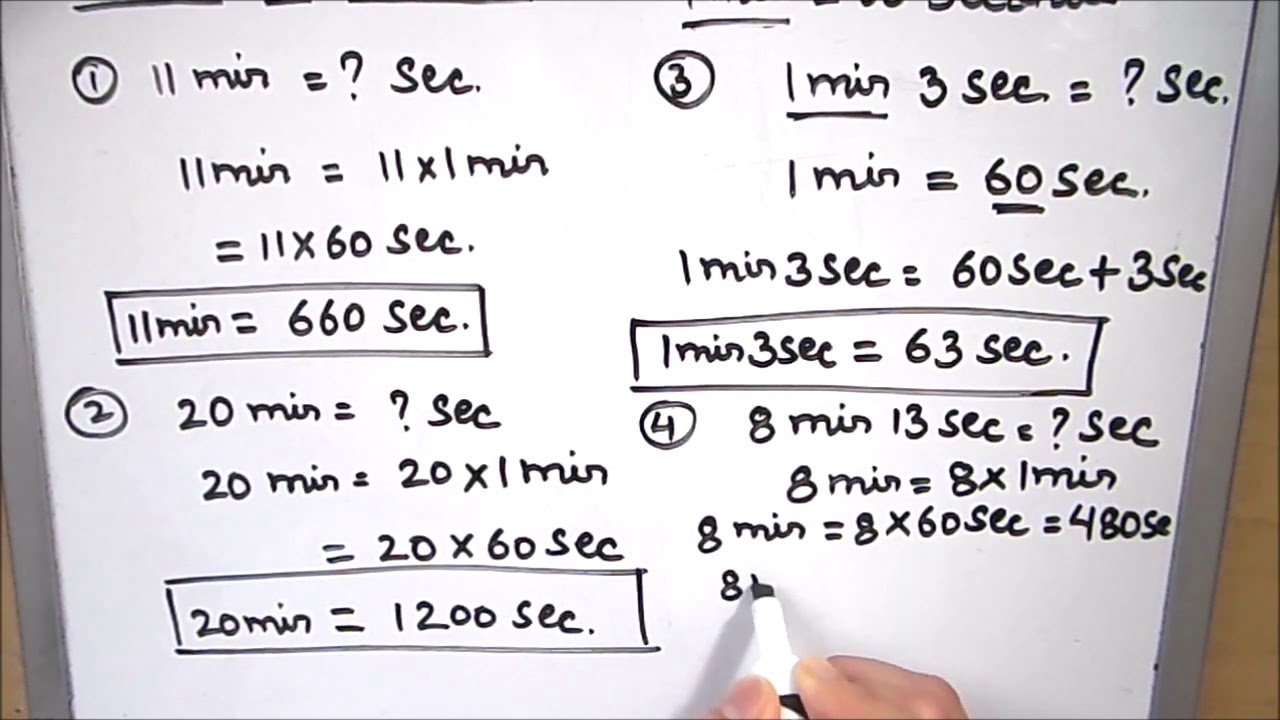 ① 11 min = ? sec.
11 min = 11 x 1 min
= 11 x 60 sec.
11 min = 660 sec.
② 20 min = ? sec
20 min = 20 x 1 min
= 20 x 60 sec
20 min = 1200 sec.
③ 1 min 3 sec. = ? sec.
1 min = 60 sec.
1 min 3 sec = 60 sec + 3 sec
1 min 3 sec = 63 sec.
④ 8 min 13 sec = ? sec
8 min = 8 x 1 min
8 min = 8 x 60 sec = 480 se
8